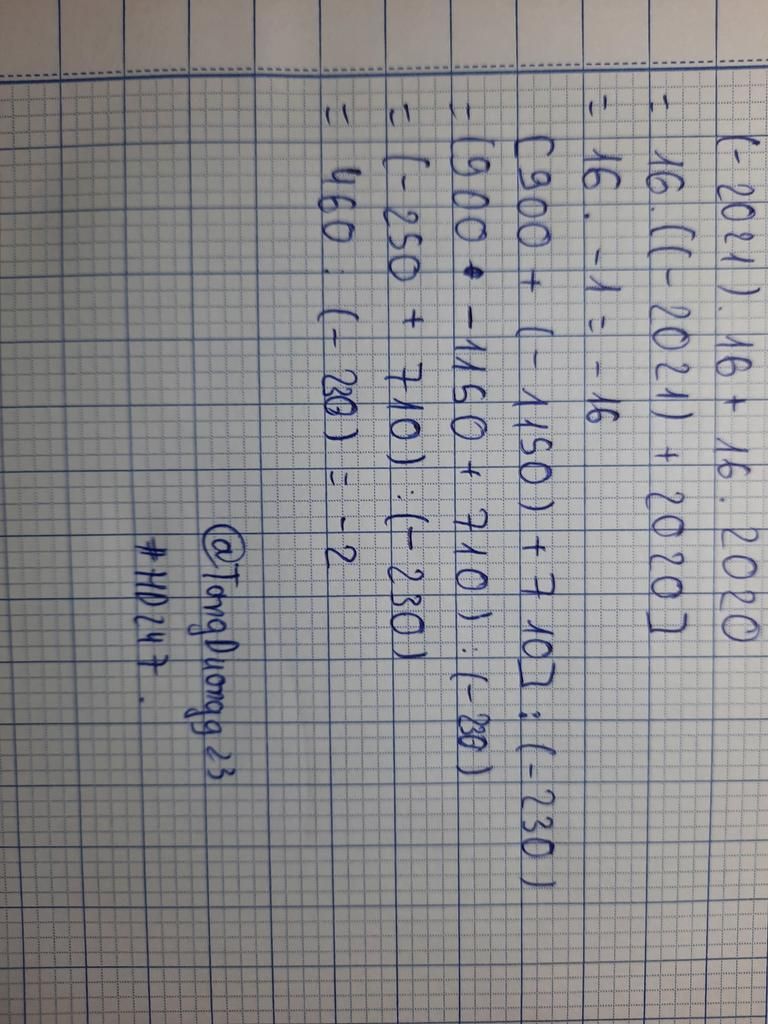 (-2021). 16 + 16. 2020
= 16. ((-2021) + 2020]
= 16. -1 = -16
[900 + (-1150) + 710] : (-230)
= (900 - 1150 + 710) : (-230)
= (-250 + 710) : (-230)
= 460 : (-230) = -2
@TongDuongg23
#HD247.